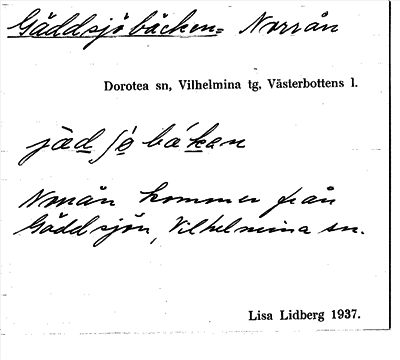 Gäddsjöbäcken = Norrån
Dorotea sn, Vilhelmina tg, Västerbottens l.
Norrån kommer från
Gäddsjön, Vilhelmina sn.
Lisa Lidberg 1937.